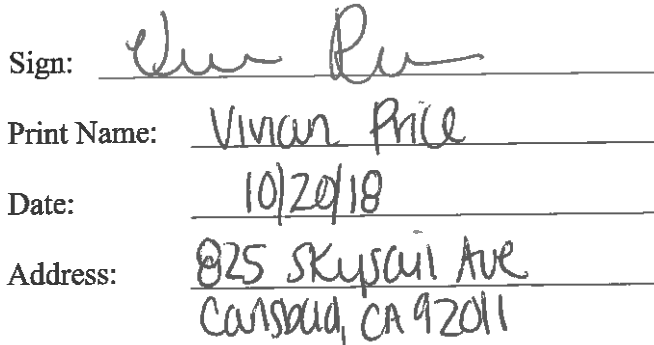 Sign:
Print Name: Vivian Price
Date: 10/20/18
Address: 825 Skysail Ave
Carlsbad, CA 92011